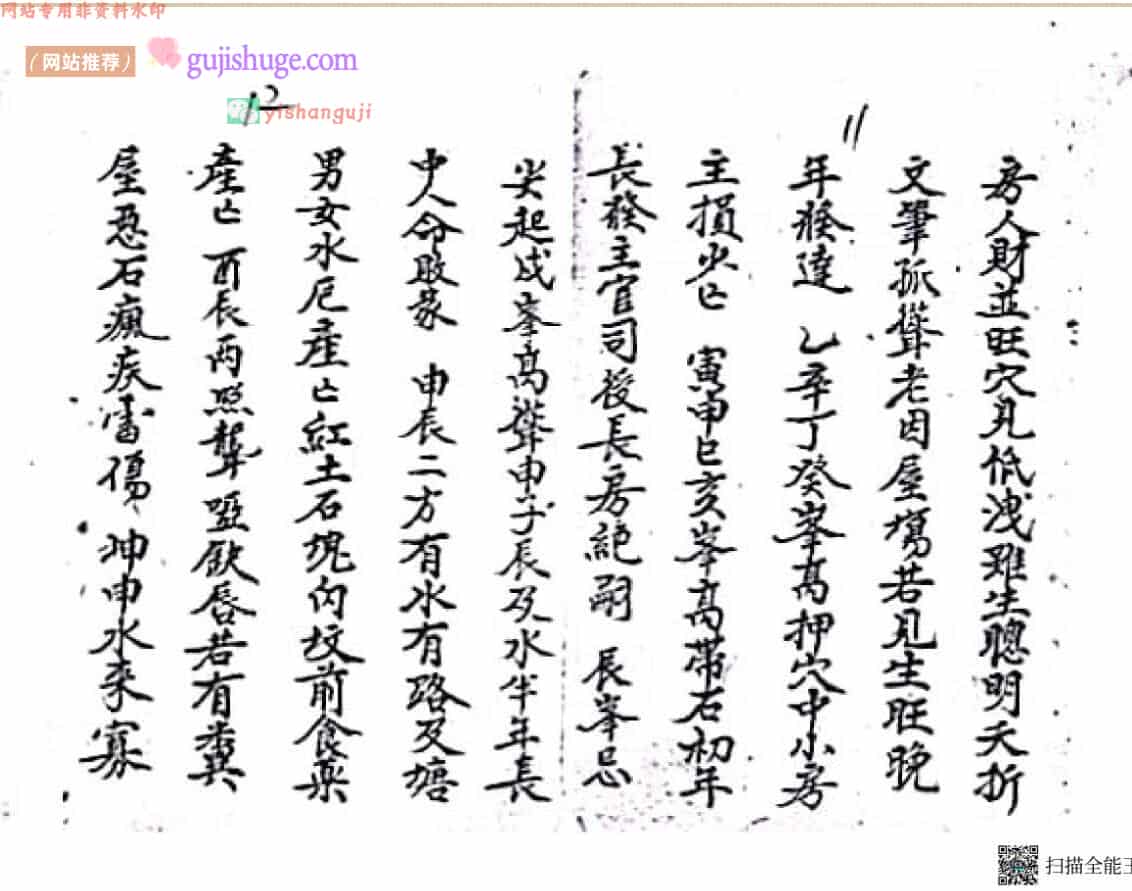 网站专用非资料水印
(网站推荐) gujishuge.com
yishanguji
11
房人財並旺穴見低洩雖生聰明夭折
文筆孤聳老因屋塲若見生旺晚
年發達 乙辛丁癸峯高押穴中小房
主損少亡 寅申巳亥峯高帶石初年
長發主官司授長房絕嗣 辰峯忌
12
尖起戌峯高聳申子辰及水半年長
中人命敗家 申辰二方有水有路及塘
男女水厄產亡紅土石塊內坟前食藥
產亡 酉辰兩照聾啞缺唇若有糞
屋惡石瘋疾雷傷 坤申水來寡
扫描全能王